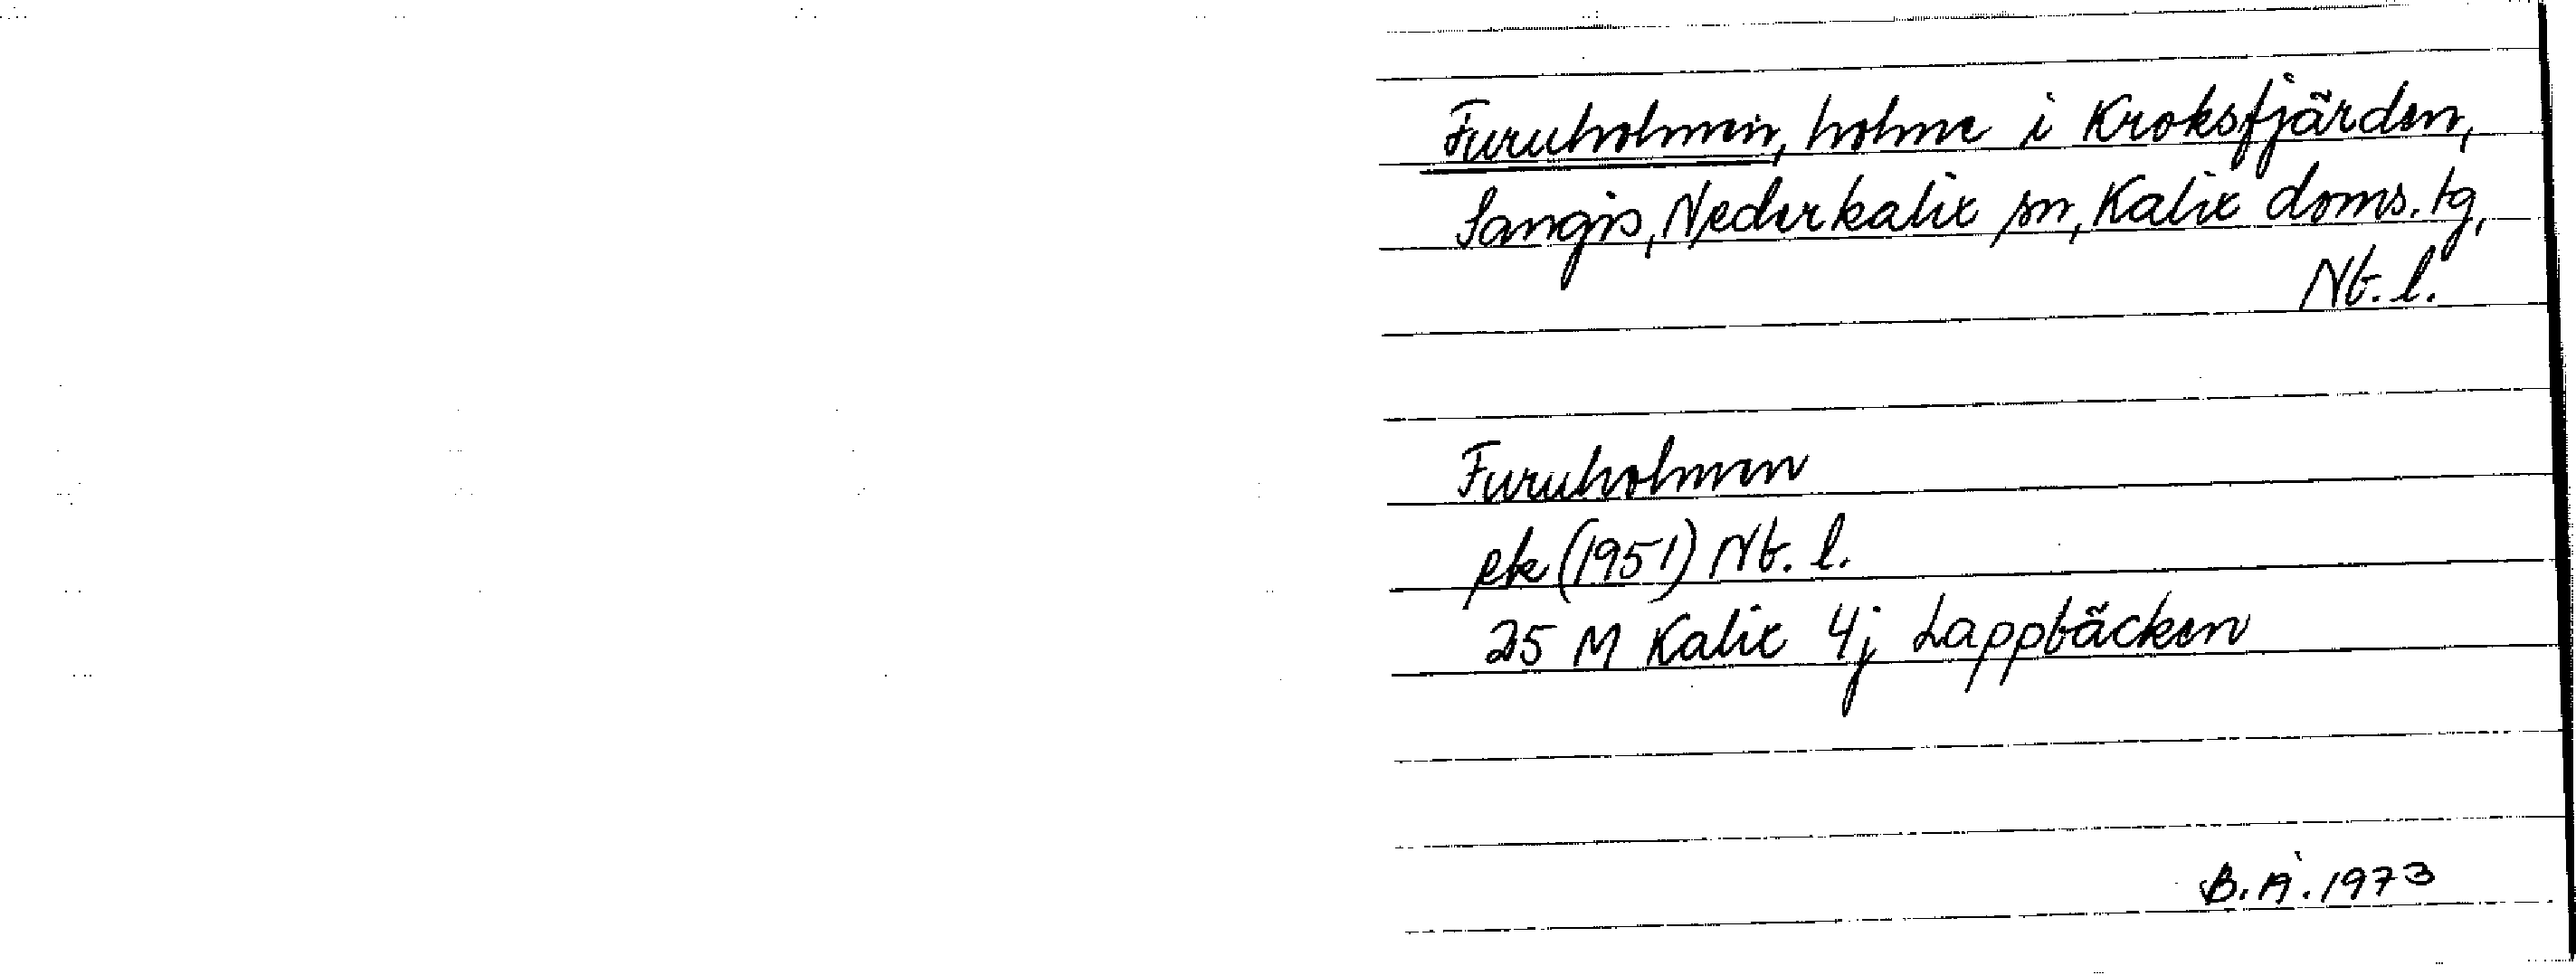 Furuholmen, holme i Kroksfjärden,
Sangis, Nederkalix sn, Kalix doms. tg,
Nb. l.
Furuholmen
ek (1951) Nb. l.
25 M Kalix 4j Lappbäcken
B.Å. 1973